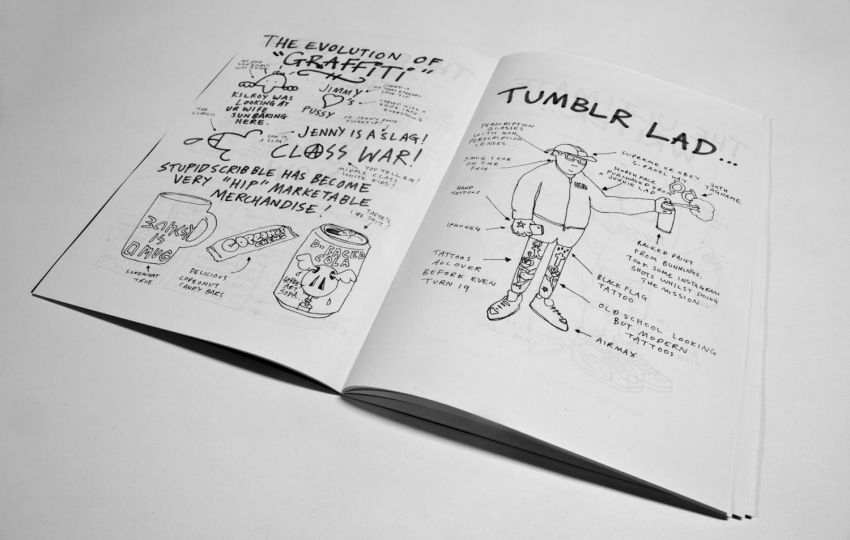 THE EVOLUTION OF
"GRAFFiTi"
KILROY WAS
LOOKING AT
UR WIFE
SUNBAKING
HERE.
JIMMY
'S
PUSSY
THE
CLASSIC
JENNY IS A SLAG!
CLASS WAR!
YOU TELL EM!
MIDDLE CLASS
WHITE KIDS!
STUPID SCRIBBLE HAS BECOME
VERY "HIP" MARKETABLE
MERCHANDISE!
TASTES
LIKE SHIT!
BANKSY
IS
A MUG
SOMEWHAT
TRUE
DELICIOUS
COREONUT
CANDY BARS
DR FACED
COLA
GREAT
ART
SODA
TUMBLR LAD...
PERSCRIPTION
GLASSES
WITH NON
PERSCRIPTION
LENSES
SMUG LOOK
ON THE
FACE
HAND
TATTOOS
IPHONE4
TATTOOS
ALL OVER
BEFORE EVEN
TURN 19
SUPREME OR OBEY
5-PANEL HAT
NORTH FACE
PURCHASED FROM
JUNKIE LAD
RACKED PAINT
FROM BUNNINGS.
TOOK SOME INSTAGRAM
SHOTS WHILST DOING
THE MISSION.
BLACK FLAG
TATTOO
OLD SCHOOL LOOKING
BUT MODERN
TATTOOS
AIRMAX